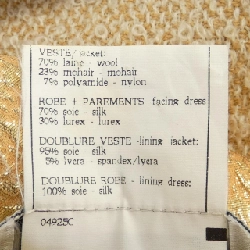 VESTE/jacket:
70% laine - wool
23% mohair - mohair
7% polyamide - nylon
ROBE + PAREMENTS facing dress
70% soie - silk
30% lurex - lurex
DOUBLURE VESTE -lining jacket:
95% soie - silk
5% lycra - spandex/lycra
DOUBLURE ROBE - lining dress:
100% soie - silk
04925C